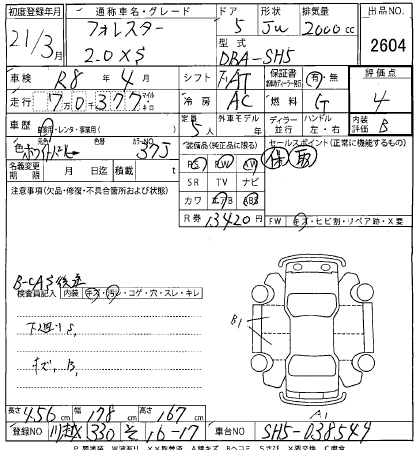 初度登録年月 通称車名・グレード ドア 形状 排気量 出品NO.
21/3月 フォレスター 5 2000cc
2.0 XS 型式 DBA-SH5 2604
車検 R8年4月 シフト AT 保証書 有・無 評価点
走行 7万0377 マイル キロ 冷房 AC 燃料 G 4
車歴 自家用・レンタ・事業用( ) 定員 5人 外車モデル 年 ディーラー 並行 ハンドル 左・右 内装評価 B
色 元色 色替 カラーNO. 375 装備品(純正品に限る) セールスポイント(正常に機能するもの)
名義変更期限 月 日迄 積載 t PS PW AW 保 取
注意事項(欠品・修復・不具合箇所および状態) SR TV ナビ
カワ エアB ABS
R券 13420円 FW キズ・ヒビ割・リペア跡・X要
B-CAS後送
検査員記入 内装 キズ・汚レ・コゲ・穴・スレ・キレ
下廻りS1
キズ、B1
B1
A1
長さ 456cm 幅 178cm 高さ 167cm
登録NO 川越 330 そ 16-17 車台NO SH5-038549